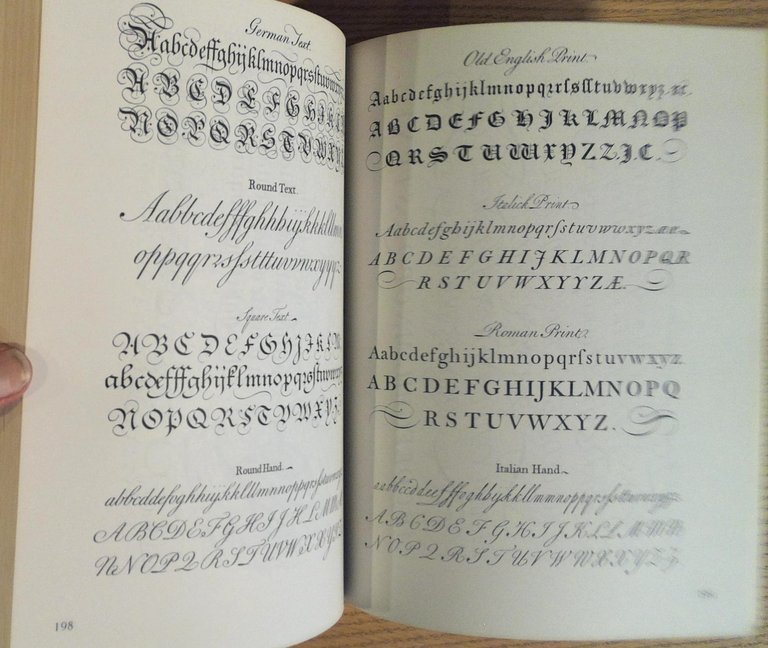 German Text.
Aabcdeffghijklmnopqrsſtuvwxyz
A B C D E F G H I J K L
N O P Q R S T V W X Y Z
Round Text.
Aabbcdefffghhhijkkkllllm
oppqqrzsſstttuvvnxyyyz
Square Text.
A B C D E F G H J I K L M
abcdefffghijklmnopqrsſtuvw
N O P Q R S T V W X Y Z
Round Hand.
abbcddefoghhiijkkllllmnnoppqrrsſstuvw
A B C D E F G H I J K L M M
N N O P Q R S T U V W X X Y
198
Old English Print.
Aabcdefghijklmnopqrzsſſſtuvwwxyz
A B C D E F G H J K L M N O P
Q R S T U W X Y Z Z J C.
Italick Print.
Aabcdefghijklmnopqrſstuvwwxyzææ
A B C D E F G H I J K L M N O P Q R
R S T U V W X Y Y Z Æ.
Roman Print.
Aabcdefghijklmnopqrſstuvwxyz
A B C D E F G H I J K L M N O P Q
R S T U V W X Y Z.
Italian Hand.
A B C D E F G H I J K L M M
N O P Q R S T U V W X X Y Z